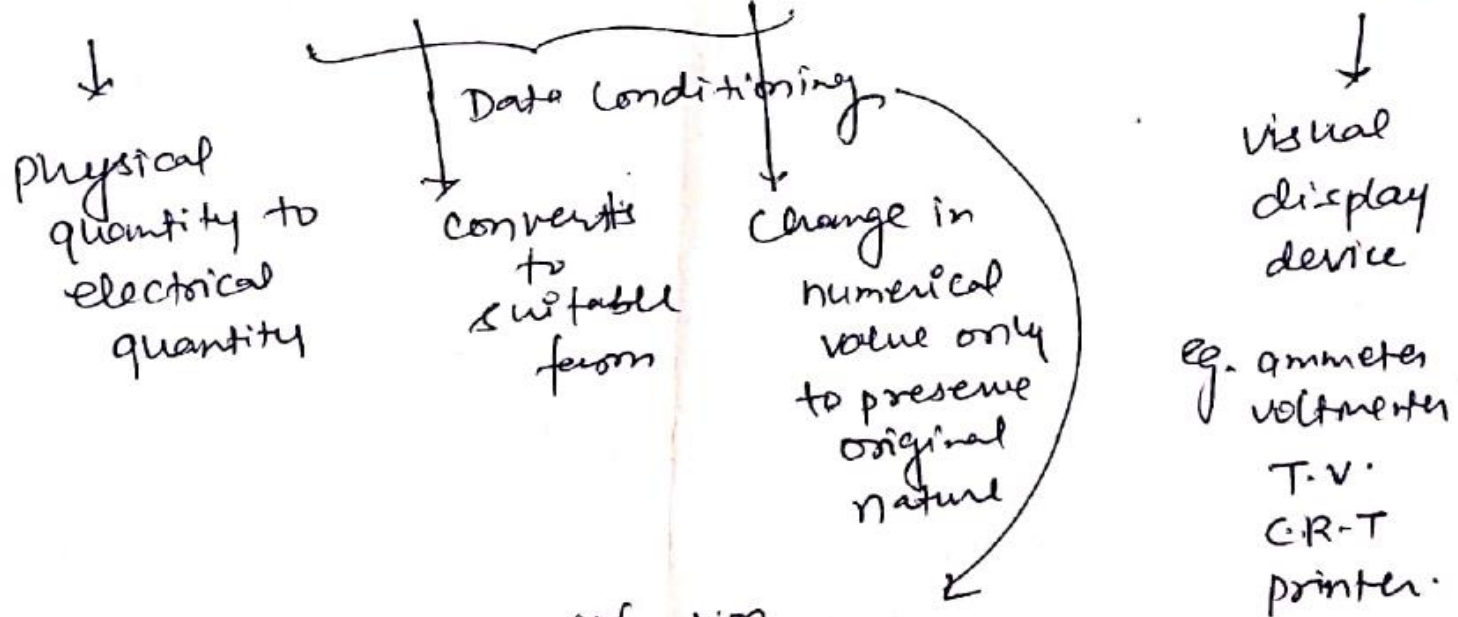 Data Conditioning
physical
quantity to
electrical
quantity
converts
to
suitable
form
Change in
numerical
value only
to preserve
original
nature
visual
display
device
eg. ammeter
voltmeter
T.V.
C.R.T
printer.